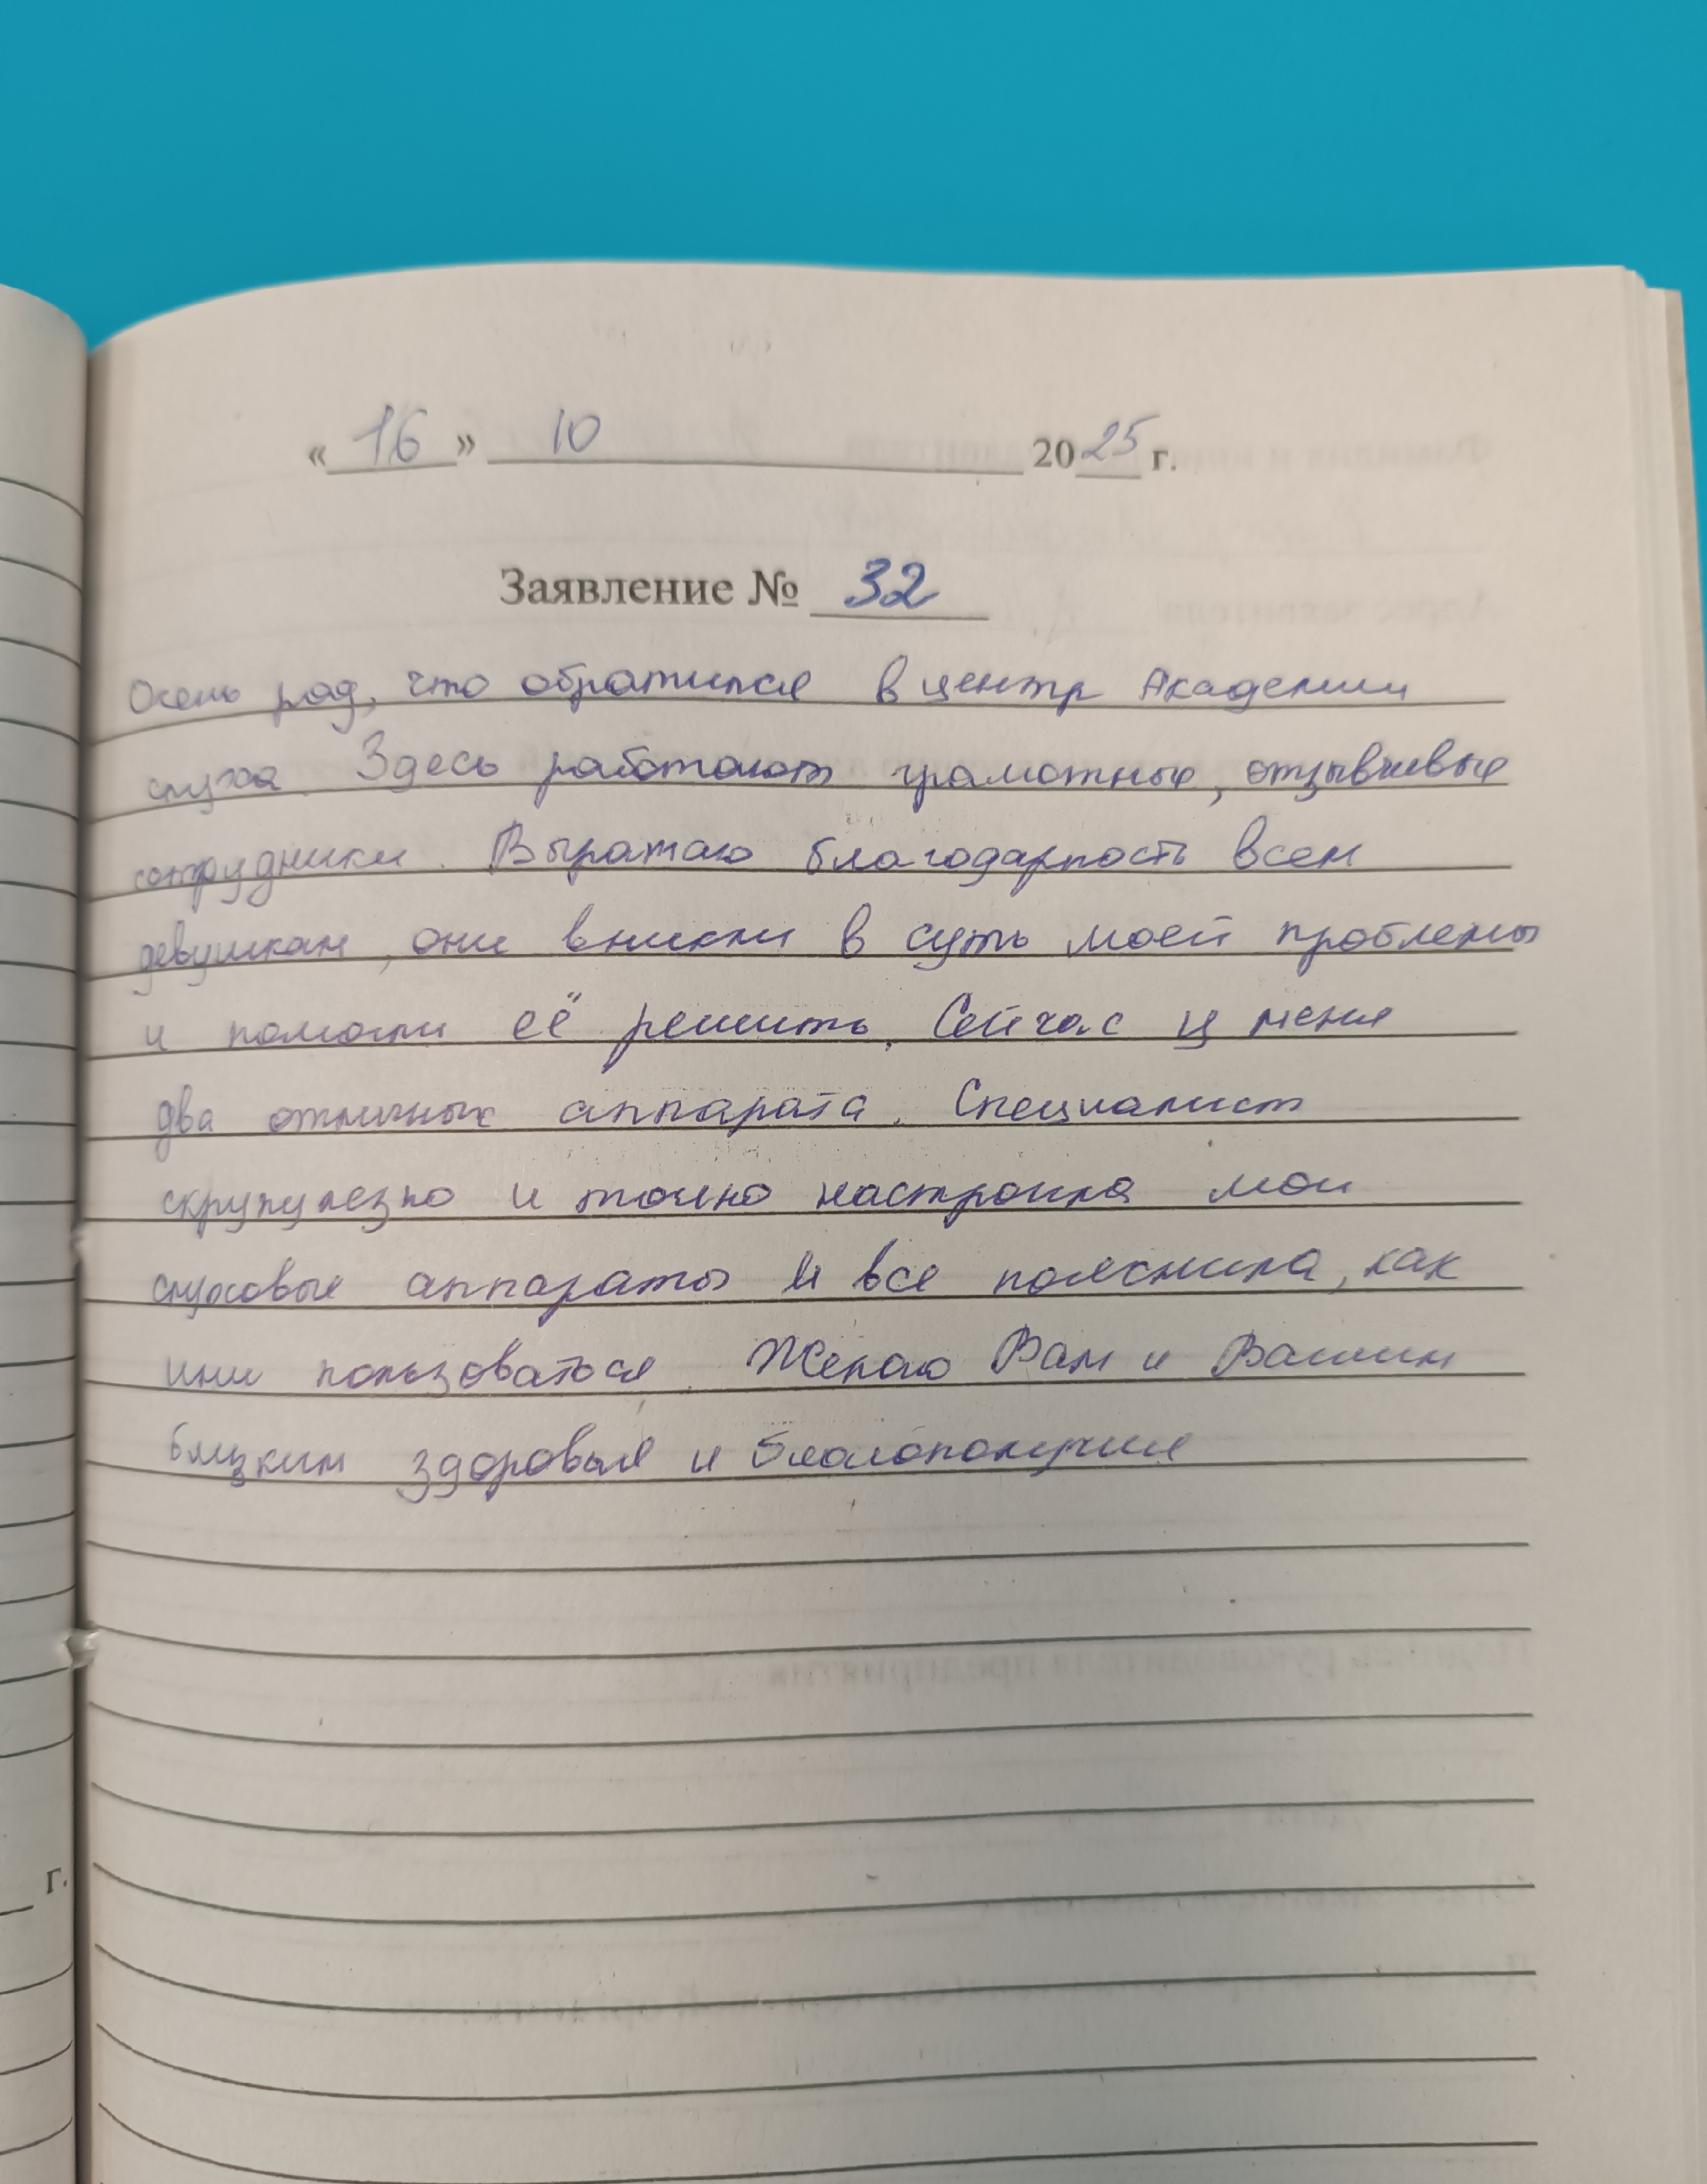 « 16 » 10 2025 г.
Заявление № 32
Очень рад, что обратился в центр Академии
слуха. Здесь работают грамотные, отзывчивые
сотрудники. Выражаю благодарность всем
девушкам, они вникли в суть моей проблемы
и помогли её решить. Сейчас у меня
два отличных аппарата. Специалист
скрупулезно и точно настроила мои
слуховые аппараты и все пояснила, как
ими пользоваться. Желаю Вам и Вашим
близким здоровья и благополучия
г.